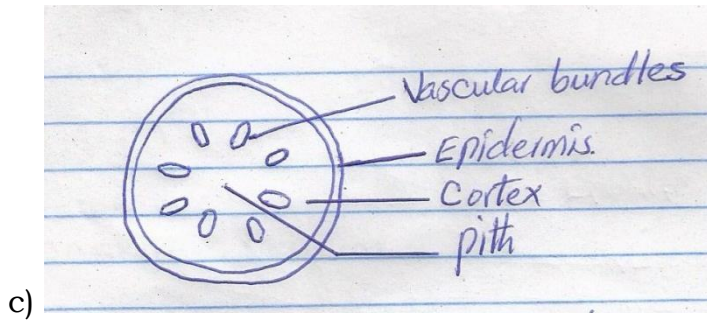 Vascular bundles
Epidermis.
Cortex
pith
c)